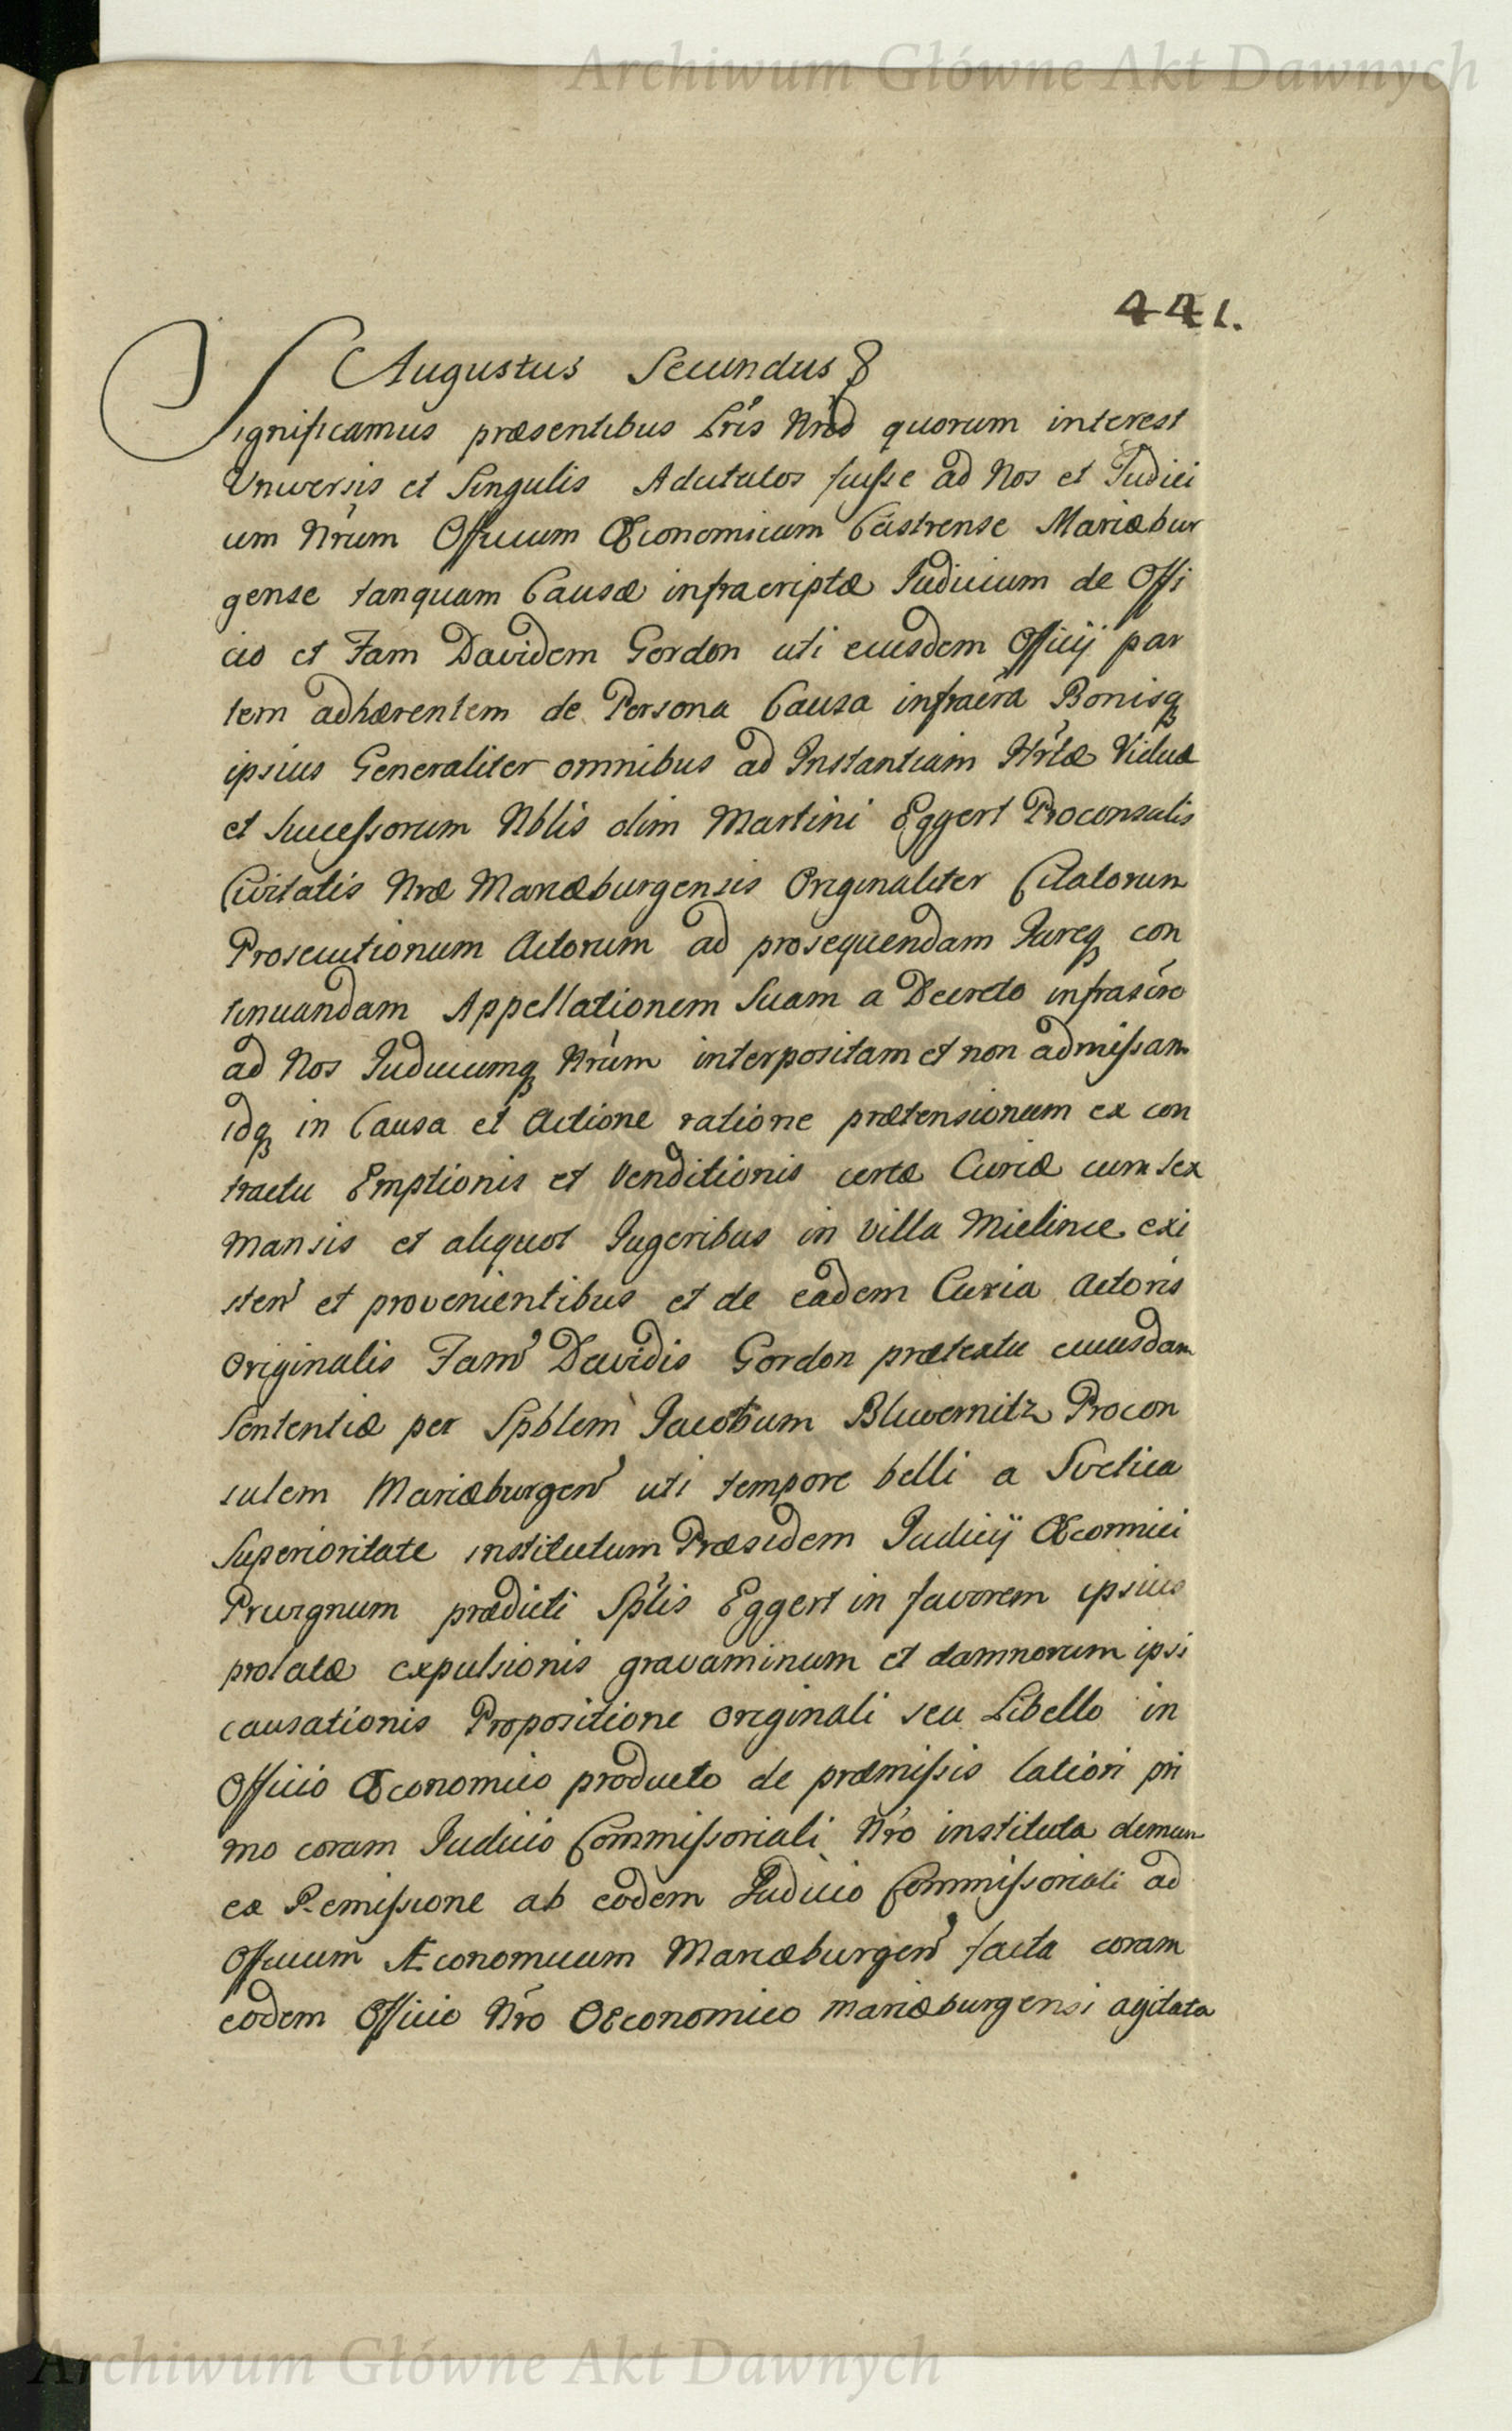 Archiwum Główne Akt Dawnych
441.
Augustus Secundus
Significamus præsentibus Lr̃is Nr̃is quorum interest
Universis et Singulis Adcitatos fuisse ad Nos et Judici
um Nr̃um Officium Œconomicum Castrense Mariæbur
gense tanquam Causæ infrascriptæ Judicium de Offi
cio et Fam Davidem Gordon uti eiusdem Officij par
tem adhærentem de Persona Causa infracr̃a Bonisq
ipsius Generaliter omnibus ad Instantiam Hr̃tæ Viduæ
et Successorum Nblis olim Martini Eggert Proconsulis
Civitatis Nræ Mariæburgensis Originaliter Citatorum
Prosecutionum Actorum ad prosequendam Jureq con
tinuandam Appellationem Suam a Decreto infrascr̃o
ad Nos Judiciumq Nr̃um interpositam et non admissam
idq in Causa et Actione ratione prætensionum ex con
tractu Emptionis et Venditionis certæ Curiæ cum sex
mansis et aliquot Jugeribus in villa Mielince exi
sten̉ et provenientibus et de eadem Curia Actoris
Originalis Fam̉ Davidis Gordon prætextu cuiusdam
Sententiæ per Spblem Jacobum Bluvernitz Procon
sulem Mariæburgen̉ uti tempore belli a Svetica
Superioritate institutum Præsidem Judicij Œconomici
Privignum prædicti Sp̃lis Eggert in favorem ipsius
prolatæ expulsionis gravaminum et damnorum ipsi
causationis Propositione originali seu Libello in
Officio Œconomico producto de præmissis latiori pri
mo coram Judicio Commissoriali Nr̃o instituta demum
ex Remissione ab eodem Judicio Commissoriali ad
Officium Æconomicum Mariæburgen̉ facta coram
eodem Officio Nr̃o Œconomico Mariæburgensi agitata
Archiwum Główne Akt Dawnych